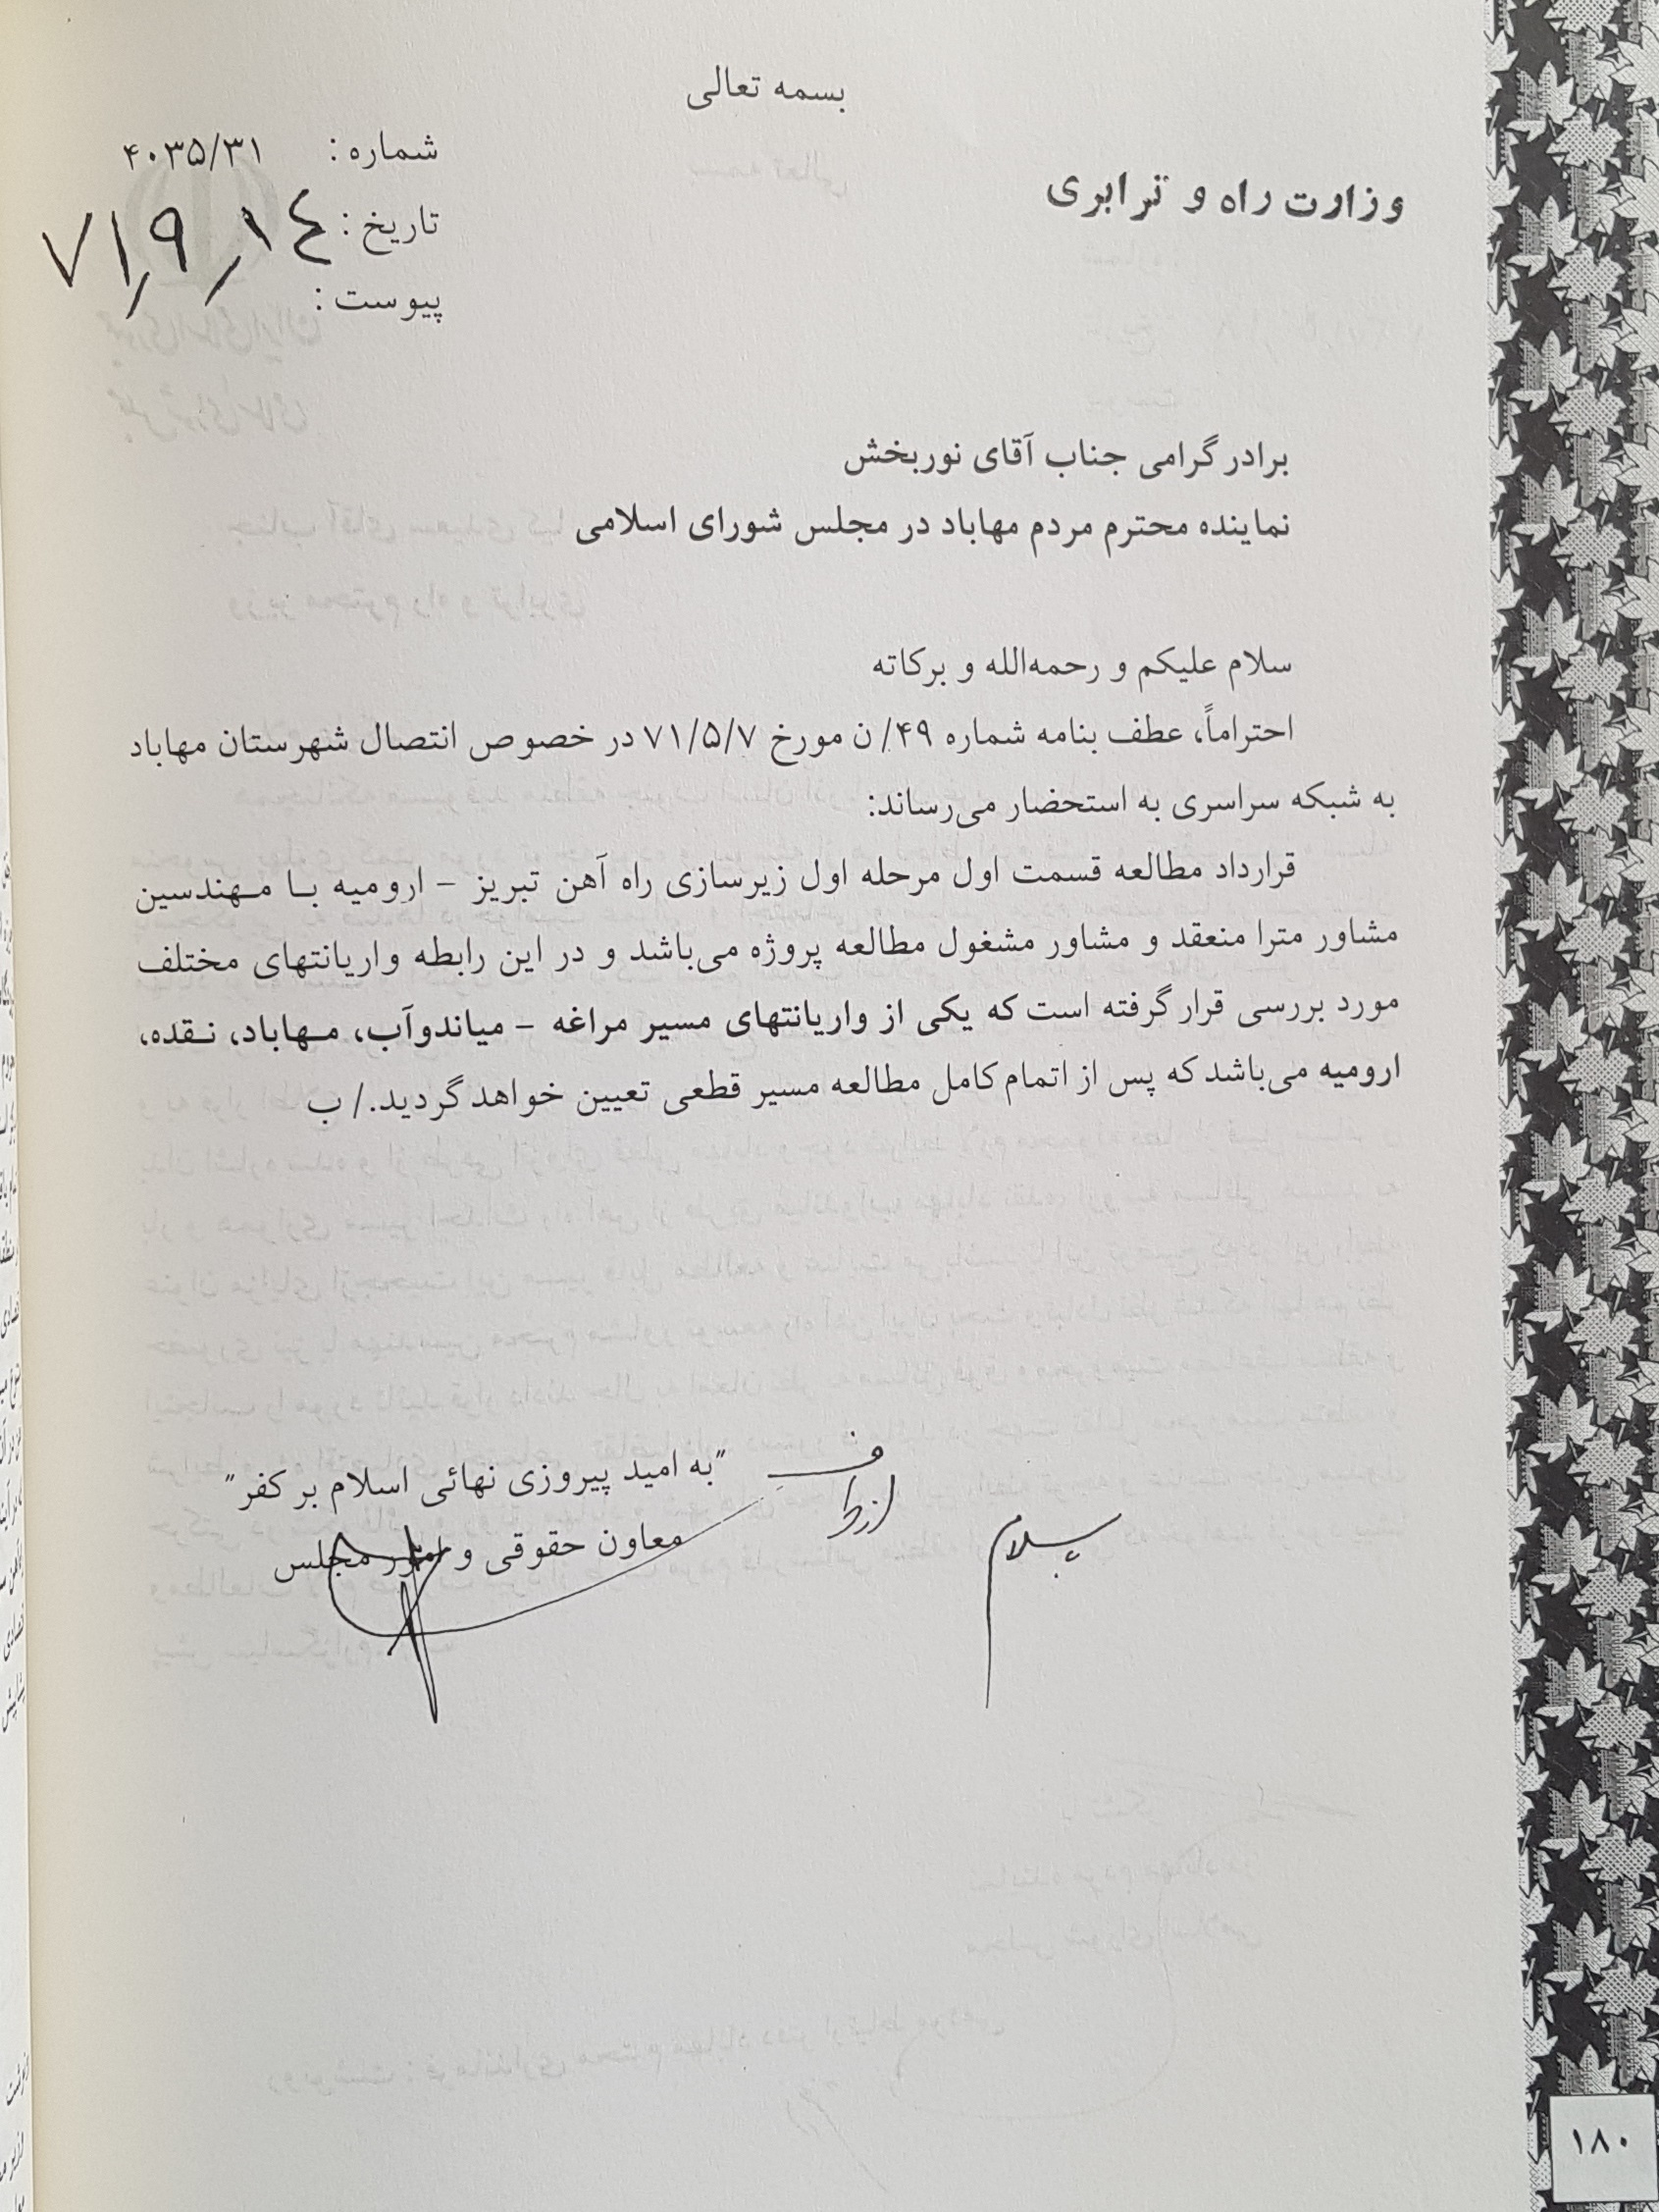 بسمه تعالی
وزارت راه و ترابری
شماره : ۴۰۳۵/۳۱
تاریخ : ۷۱٫۹٫۱٤
پیوست :
برادر گرامی جناب آقای نوربخش
نماینده محترم مردم مهاباد در مجلس شورای اسلامی
سلام علیکم و رحمه‌الله و برکاته
احتراماً، عطف بنامه شماره ۴۹/ ن مورخ ۷۱/۵/۷ در خصوص انتصال شهرستان مهاباد
به شبکه سراسری به استحضار می‌رساند:
قرارداد مطالعه قسمت اول مرحله اول زیرسازی راه آهن تبریز – ارومیه بـا مـهندسین
مشاور مترا منعقد و مشاور مشغول مطالعه پروژه می‌باشد و در این رابطه واریانتهای مختلف
مورد بررسی قرار گرفته است که یکی از واریانتهای مسیر مراغه – میاندوآب، مـهاباد، نـقده،
ارومیه می‌باشد که پس از اتمام کامل مطالعه مسیر قطعی تعیین خواهد گردید./ ب
"به امید پیروزی نهائی اسلام بر کفر"
معاون حقوقی و امور مجلس
۱۸۰